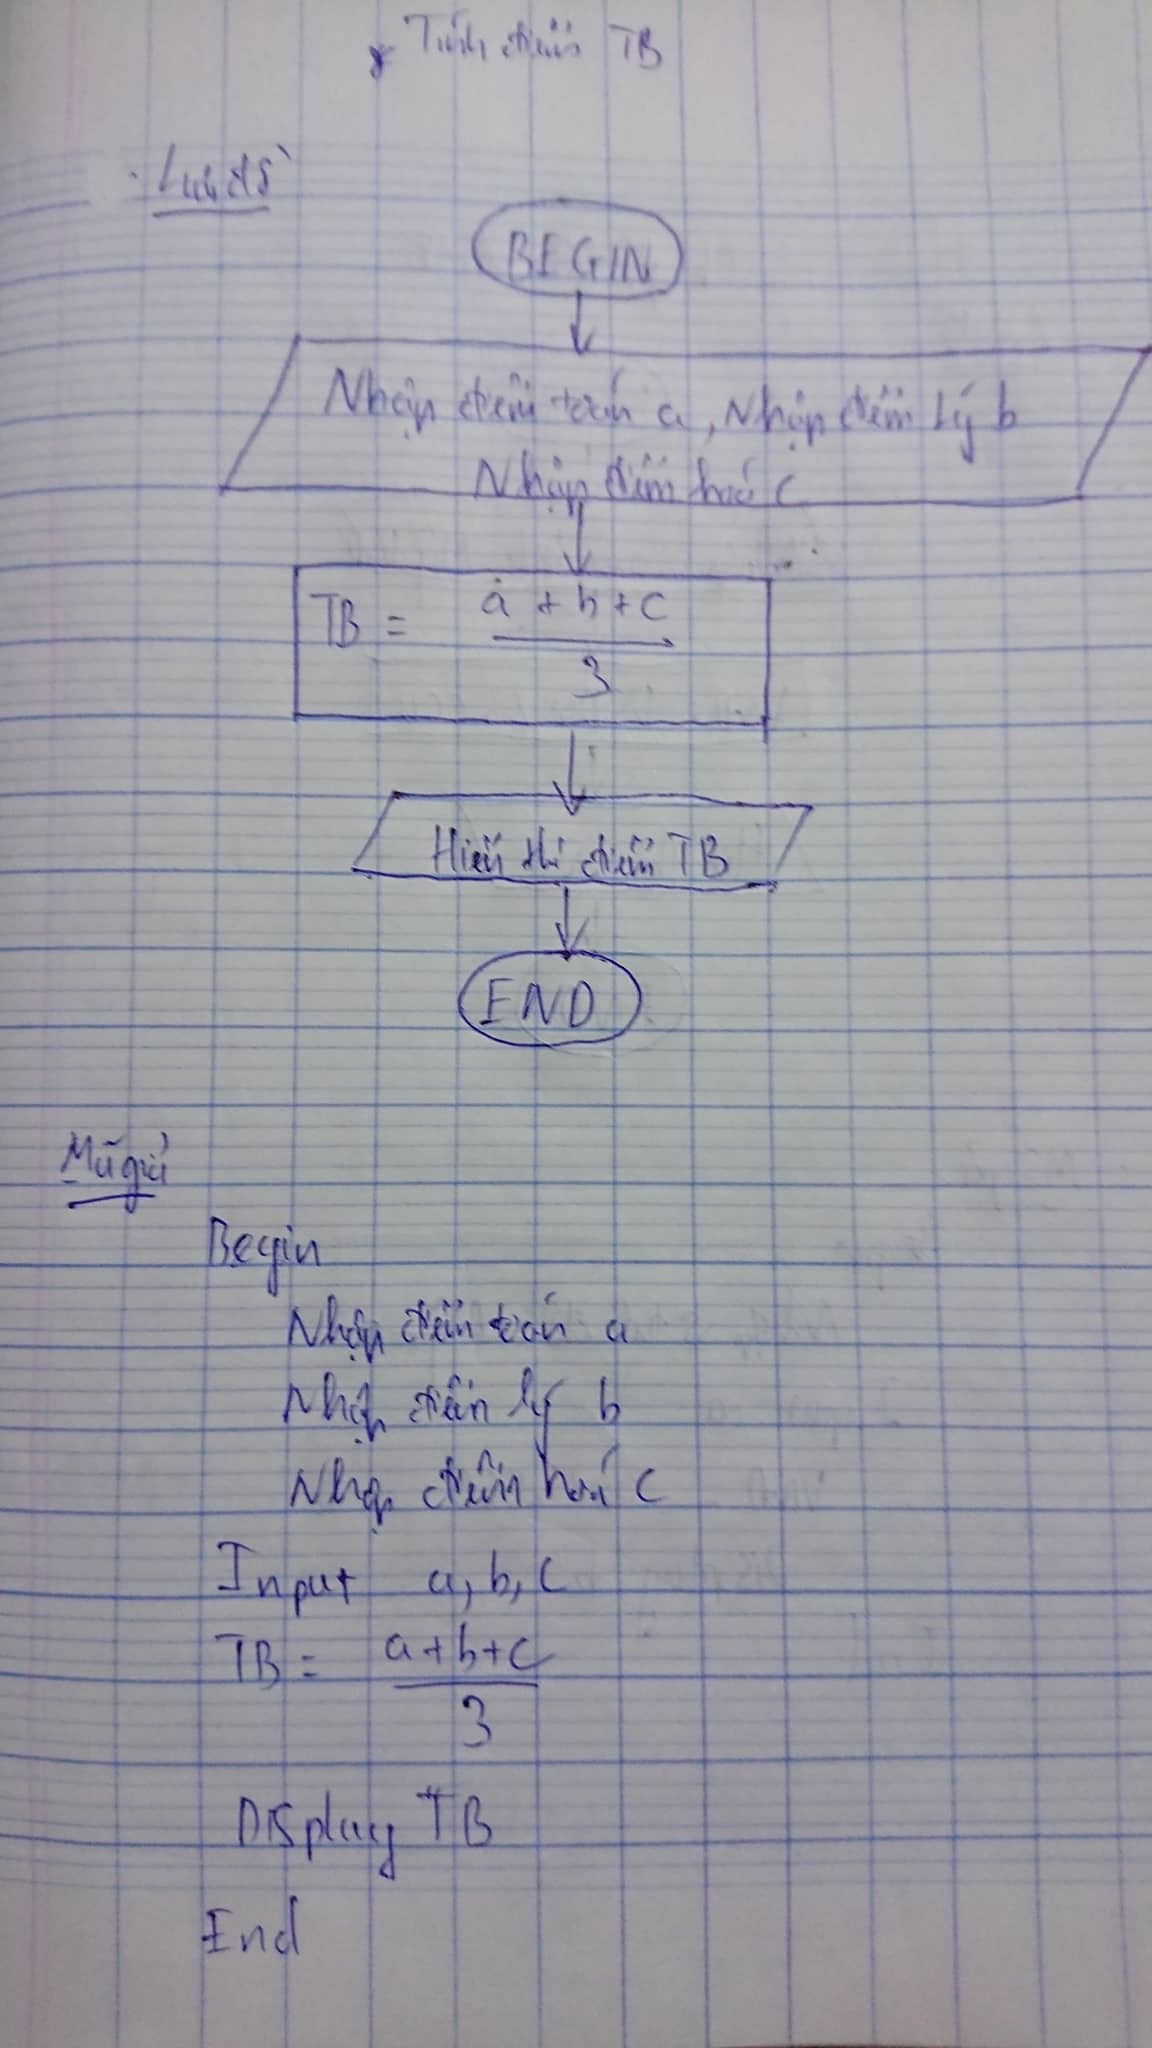 * Tính điểm TB
. Lưu đồ
BEGIN
Nhập điểm toán a, Nhập điểm Lý b
Nhập điểm hoá c
TB = a + b + c
3
Hiển thị điểm TB
END
Mã giả
Begin
Nhập điểm toán a
Nhập điểm lý b
Nhập điểm hoá c
Input a, b, c
TB = a + b + c
3
Display TB
End